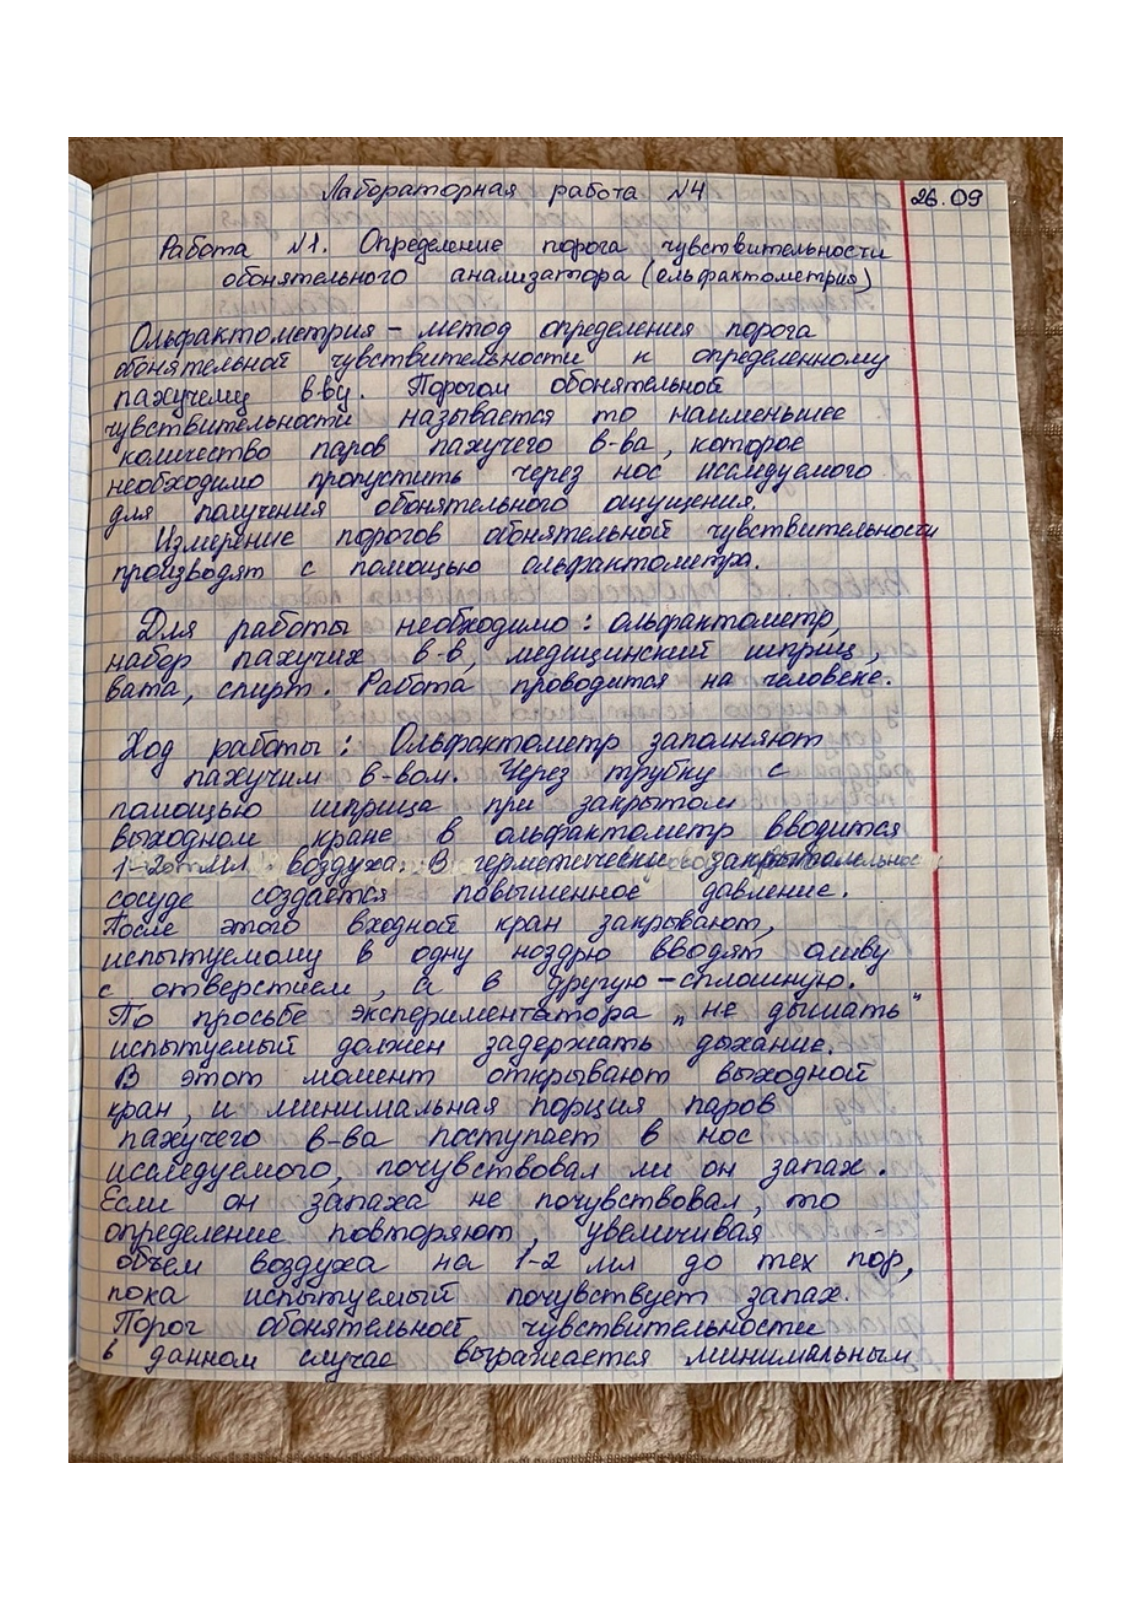 Лабораторная работа №4
26.09
Работа №1. Определение порога чувствительности
обонятельного анализатора (ольфактометрия)
Ольфактометрия – метод определения порога
обонятельной чувствительности к определенному
пахучему в-ву. Порогом обонятельной
чувствительности называется то наименьшее
количество паров пахучего в-ва, которое
необходимо пропустить через нос исследуемого
для получения обонятельного ощущения.
Измерение порогов обонятельной чувствительности
производят с помощью ольфактометра.
Для работы необходимо: ольфактометр,
набор пахучих в-в, медицинский шприц,
вата, спирт. Работа проводится на человеке.
Ход работы: Ольфактометр заполняют
пахучим в-вом. Через трубку с
помощью шприца при закрытом
выходном кране в ольфактометр вводится
1-2 мл воздуха. В герметически закрытом
сосуде создается повышенное давление.
После этого входной кран закрывают,
испытуемому в одну ноздрю вводят оливу
с отверстием, а в другую – сплошную.
По просьбе экспериментатора „не дышать"
испытуемый должен задержать дыхание.
В этот момент открывают выходной
кран, и минимальная порция паров
пахучего в-ва поступает в нос
исследуемого, почувствовал ли он запах.
Если он запаха не почувствовал, то
определение повторяют, увеличивая
объем воздуха на 1-2 мл до тех пор,
пока испытуемый почувствует запах.
Порог обонятельной чувствительности
в данном случае выражается минимальным